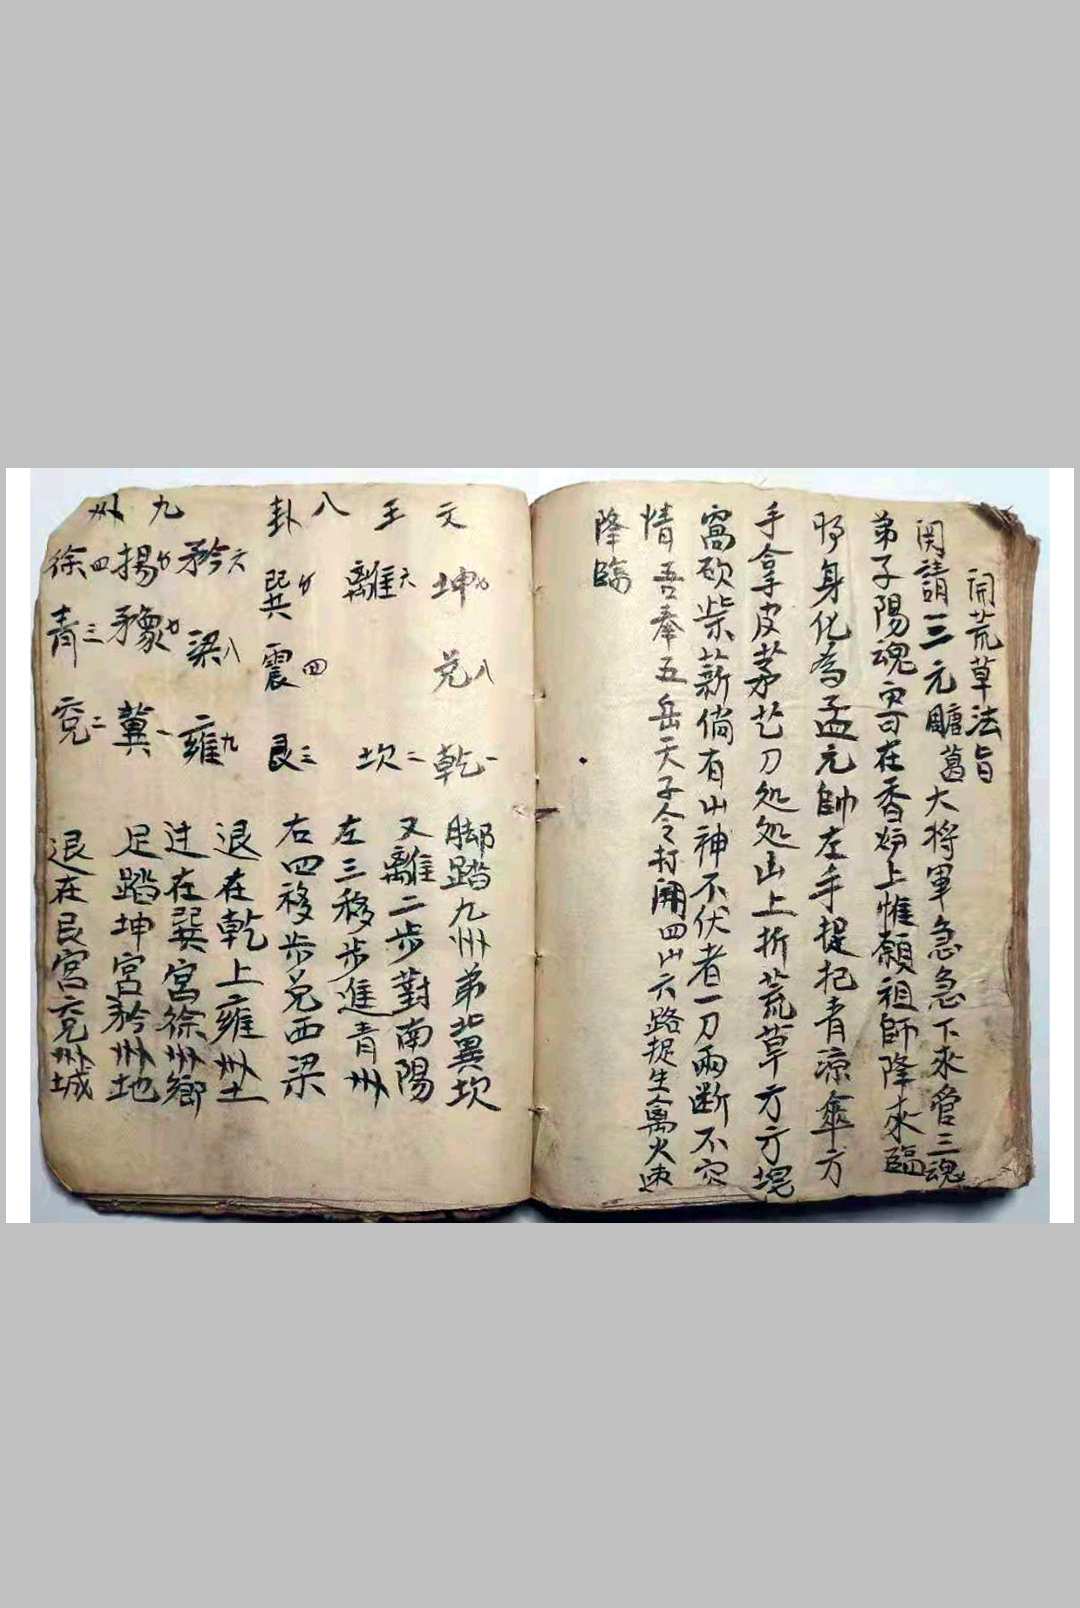 開荒草法旨
関請三元瞻葛大将軍急急下來管三魂
弟子陽魂寄在香炉上惟願祖師降來臨
吾身化為孟元帥左手提把青凉傘方
手拿皮茅乞刀処処山上折荒草方方
窩砍柴薪倘有山神不伏者一刀兩断不容
情吾奉五岳天子令打開四山六路捉生禽火速
降臨
文王八卦
坤九 兑八 乾一
離六 坎二
巽九 震四 艮三
脚踏九州弟北異坎
又離二步對南陽
左三移步進青州
右四移步兑西梁
退在乾上雍州土
过在巽宮徐州鄉
足踏坤宮矜州地
退在艮宮兖州城
九州
矜六 梁八 雍九
揚九 豫七 冀一
徐四 青三 兖二